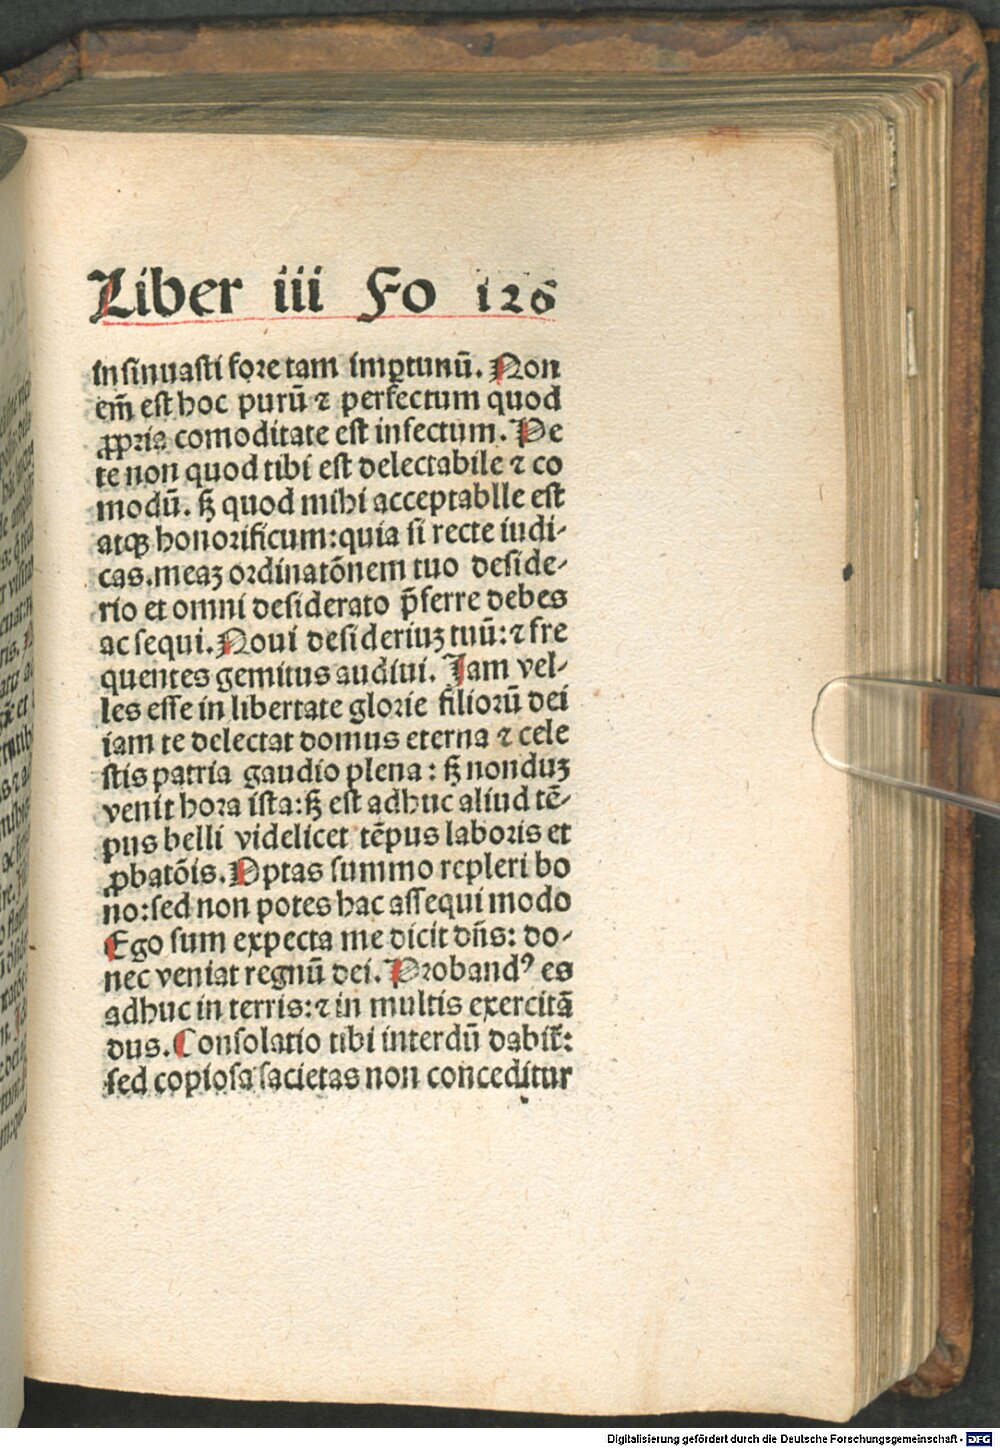 Liber iii Fo 126
insinuasti fore tam imꝑtunū. Non
em̄ est hoc purū ⁊ perfectum quod
ꝓpria comoditate est infectum. Pe
te non quod tibi est delectabile ⁊ co
modū. sꝫ quod mihi acceptablle est
atqꝫ honorificum: quia si recte iudi-
cas. meaꝫ ordinatōnem tuo deside-
rio et omni desiderato p̄ferre debes
ac sequi. Noui desideriuꝫ tuū: ⁊ fre
quentes gemitus audiui. Iam vel-
les esse in libertate glorie filiorū dei
iam te delectat domus eterna ⁊ cele
stis patria gaudio plena: sꝫ nonduꝫ
venit hora ista: sꝫ est adhuc aliud tē-
pus belli videlicet tēpus laboris et
ꝓbatōis. Optas summo repleri bo
no: sed non potes hac assequi modo
Ego sum expecta me dicit dn̄s: do-
nec veniat regnū dei. Probandꝰ es
adhuc in terris: ⁊ in multis exercitā
dus. Consolatio tibi interdū dabit̄:
sed copiosa sacietas non conceditur
Digitalisierung gefördert durch die Deutsche Forschungsgemeinschaft - DFG